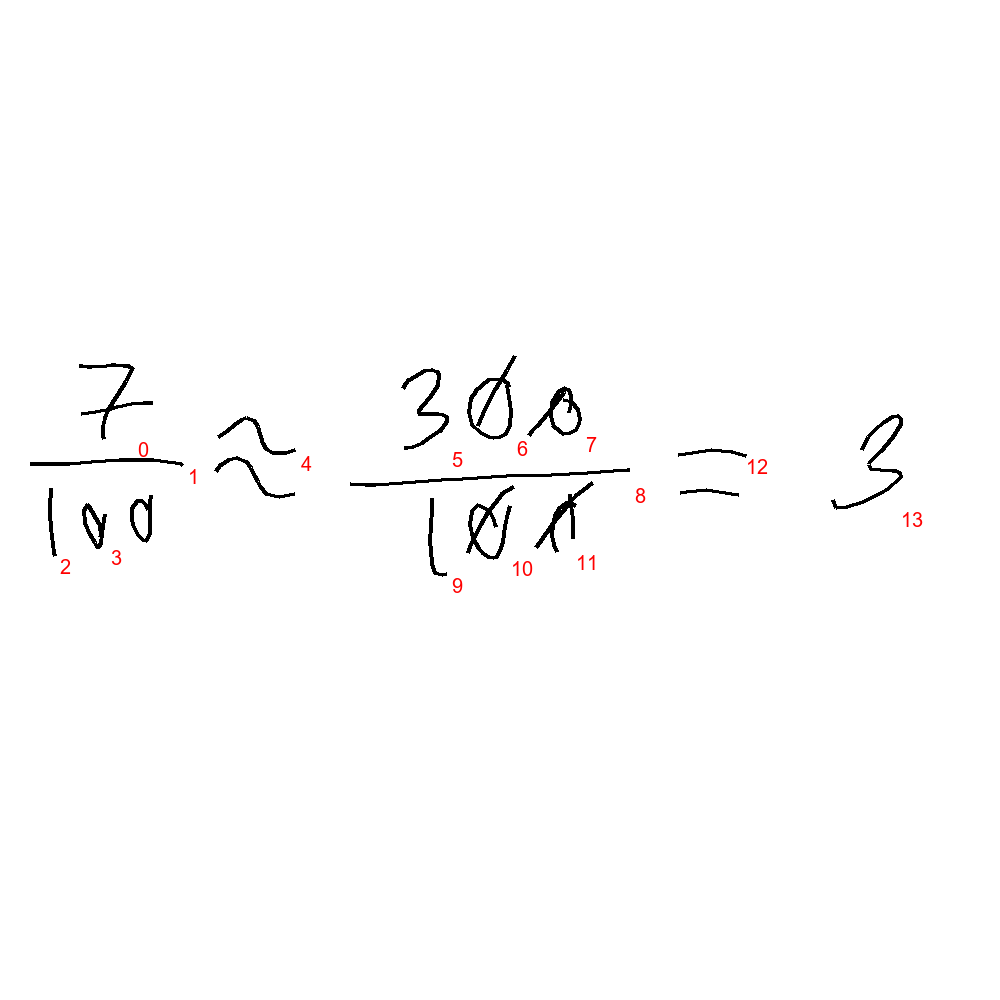 7/100 ≈ 300/100 = 3
0 1 2 3 4 5 6 7 8 9 10 11 12 13